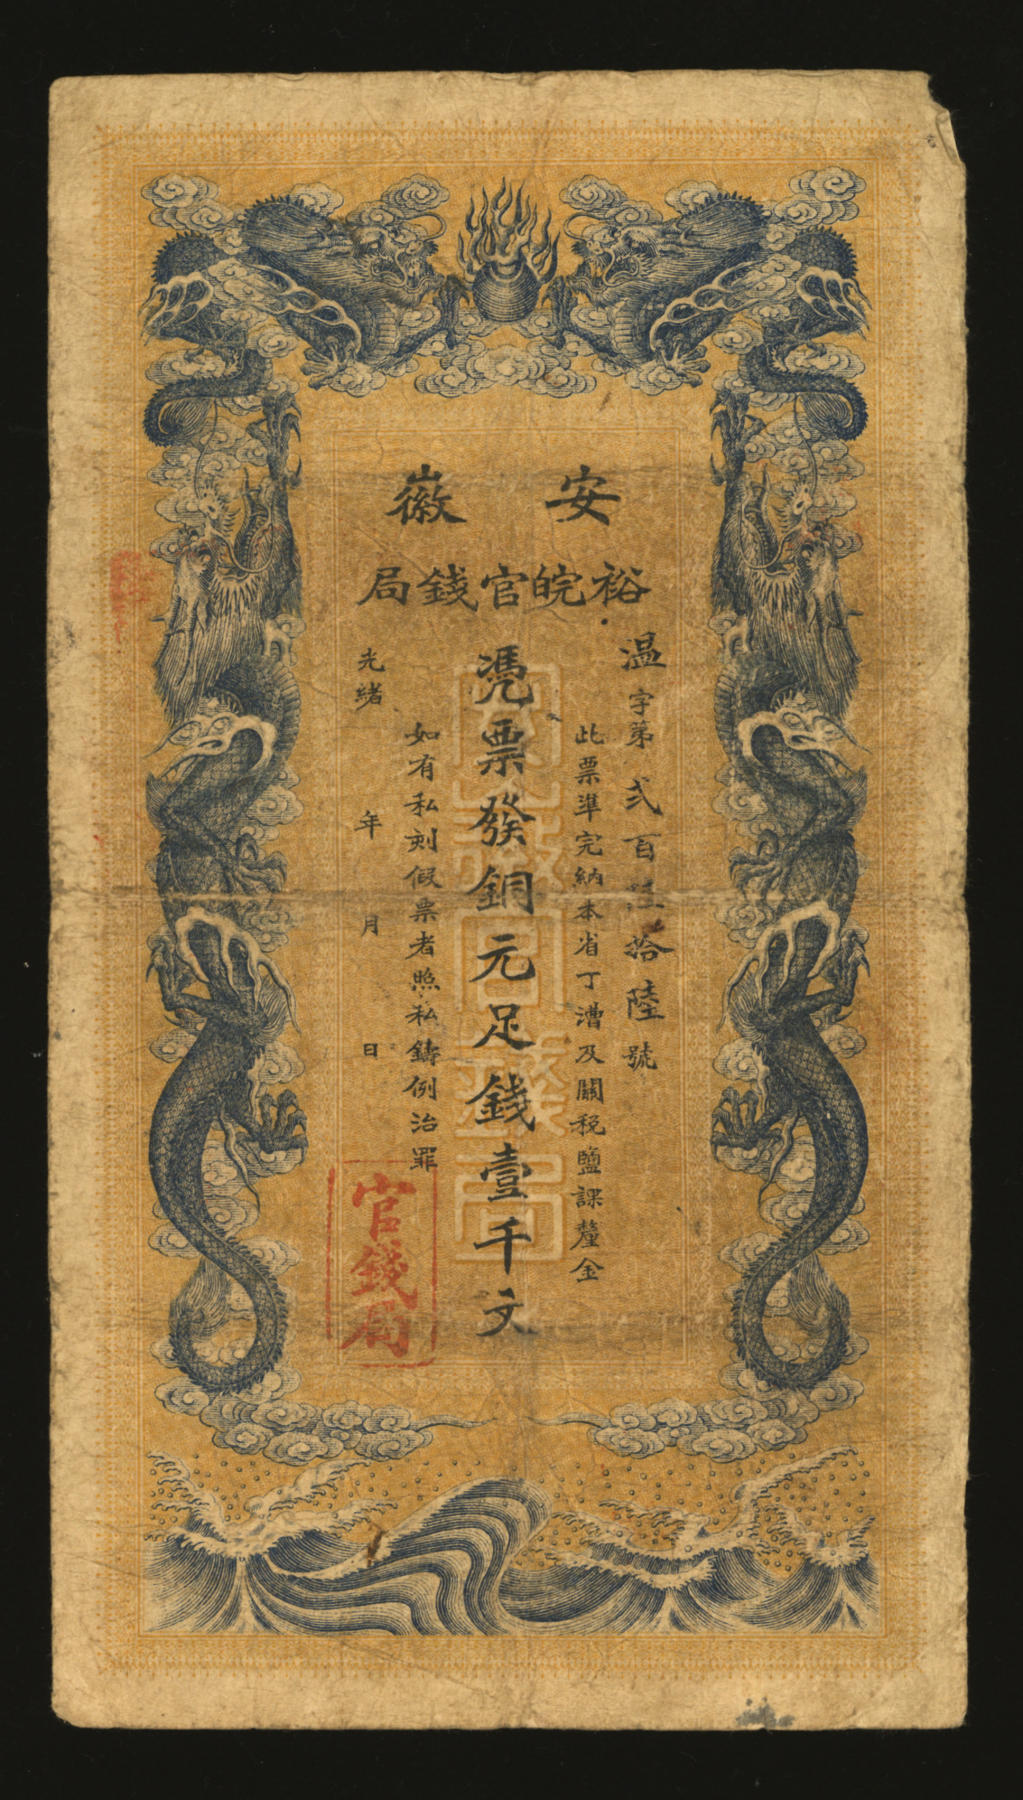 安徽
裕皖官錢局
温字第弍百陸拾陸號
此票準完納本省丁漕及關稅鹽課釐金
憑票發銅元足錢壹千文
如有私刻假票者照私鑄例治罪
光緒 年 月 日
官錢局
安徽官錢局